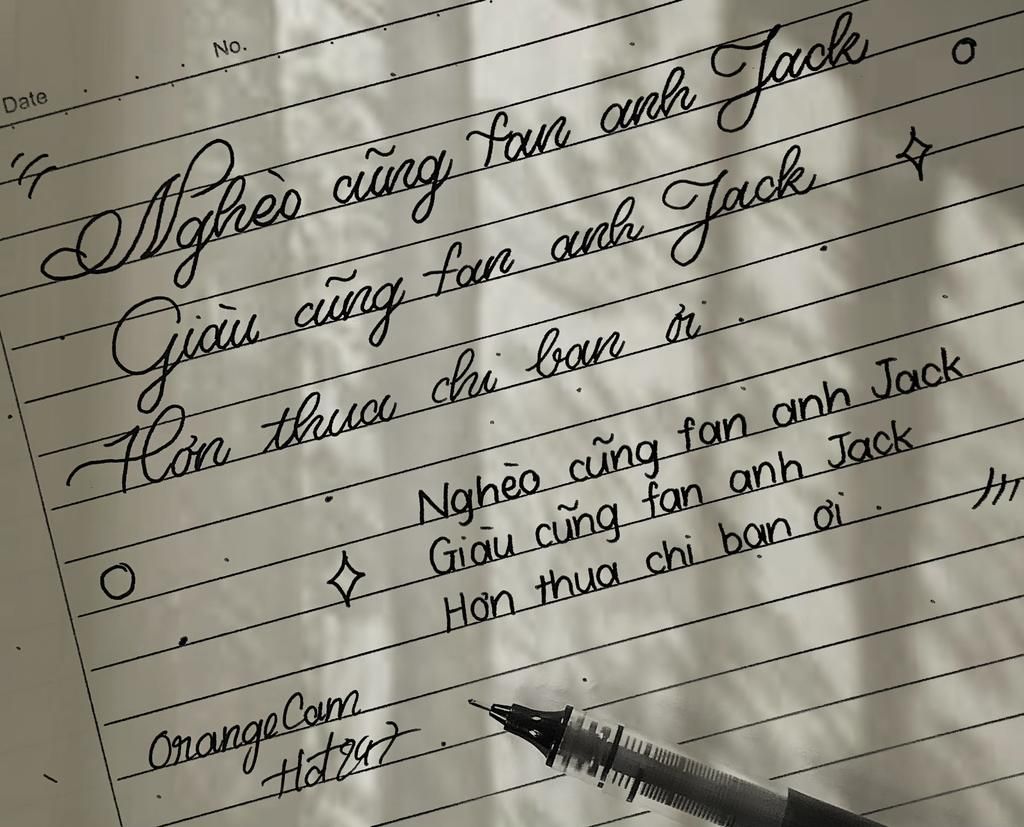 No.
Date
"
Nghèo cũng fan anh Jack
Giàu cũng fan anh Jack
Hơn thua chi bạn ơi.
Nghèo cũng fan anh Jack
Giàu cũng fan anh Jack
Hơn thua chi bạn ơi.
OrangeCam
Hot247.